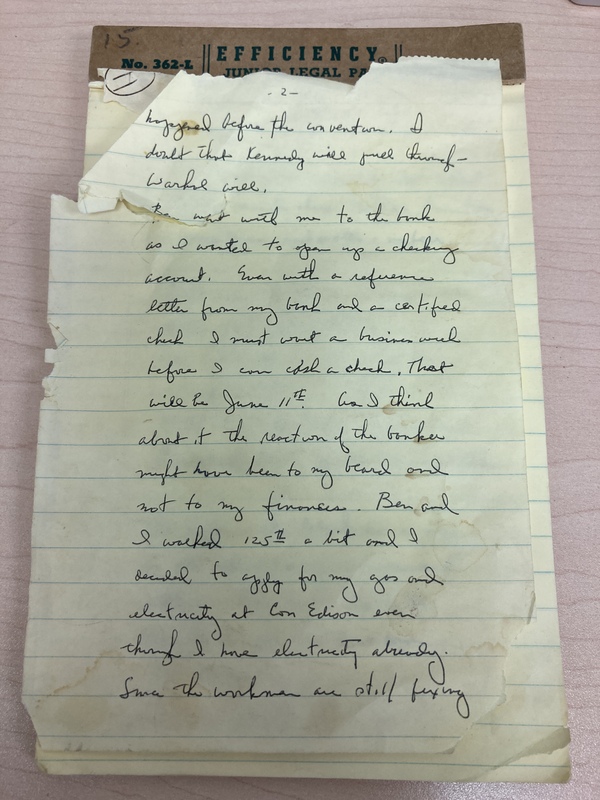 15.
EFFICIENCY®
No. 362-L
JUNIOR LEGAL PA
1
- 2 -
happened before the convention. I
doubt that Kennedy will pull through -
Warhol will.
Ben went with me to the bank
as I wanted to open up a checking
account. Even with a reference
letter from my bank and a certified
check I must wait a business week
before I can cash a check. That
will be June 11TH. As I think
about it the reaction of the banker
might have been to my beard and
not to my finances. Ben and
I walked 125TH a bit and I
decided to apply for my gas and
electricity at Con Edison even
though I have electricity already.
Since the workmen are still fixing